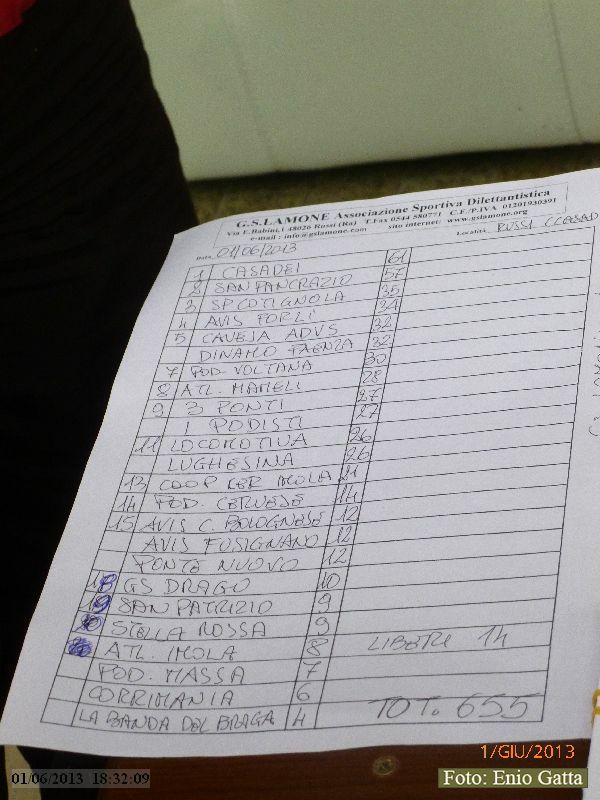 G.S.LAMONE Associazione Sportiva Dilettantistica
Via E.Babini,1 48026 Russi (Ra) T.Fax 0544 580771 C.F./P.IVA 01201930391
e-mail : info@gslamone.com sito internet: www.gslamone.org
Data 01/06/2013 Località RUSSI
1 CASADEI 61
2 SAN PANCRAZIO 57
3 SP. COTIGNOLA 35
4 AVIS FORLI
5 CAVEJA ADVS 32
DINAMO FAENZA 32
7 POD. VOLTANA 30
8 ATL. MAMELI 28
9 3 PONTI 27
I PODISTI 27
11 LOCOMOTIVA 26
LUGHESINA 26
13 COOP CER IMOLA 21
14 POD. CERVESE 14
15 AVIS C. BOLOGNESE 12
AVIS FUSIGNANO 12
PONTE NUOVO 12
18 GS DRAGO 10
19 SAN PATRIZIO 9
STELLA ROSSA 9
ATL. IMOLA 8 LIBERI 14
POD. MASSA 7
CORRIMANIA 6
LA BANDA DEL BRAGA 4 TOT. 655
1/GIU/2013
01/06/2013 18:32:09
Foto: Enio Gatta